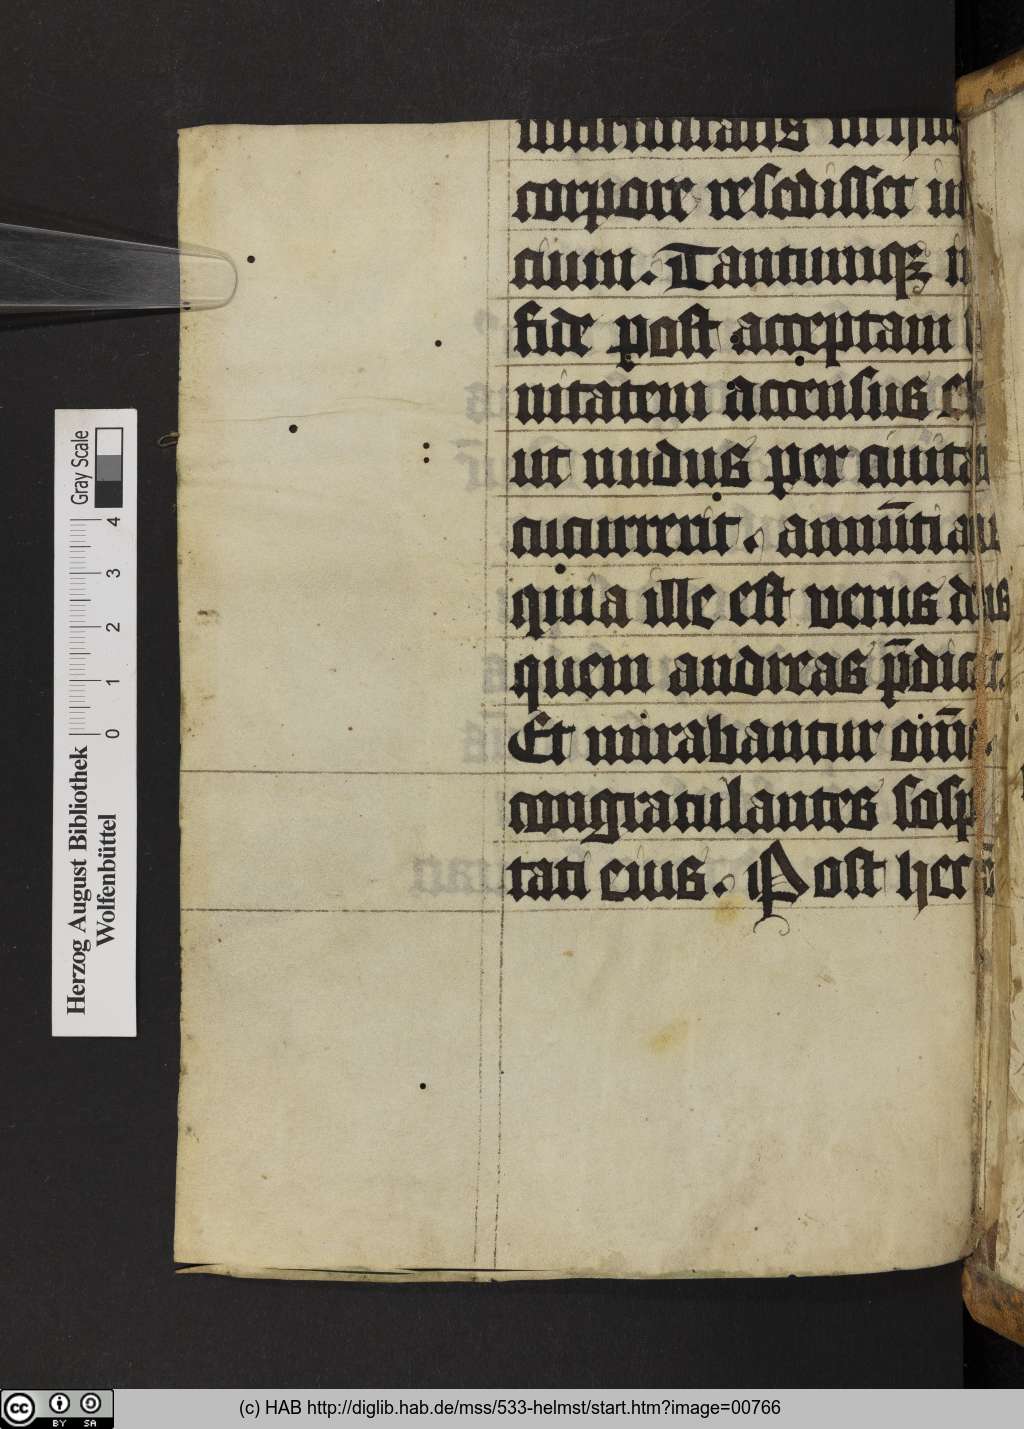 infirmitatis in hu
corpore resedisset in
cium. Tantumqꝫ i
fide post acceptam
nitatem accensus e
ut nudus per ciuita
cucurrerit. annūtia
quia ille est verus deus
quem andreas p̄dicat.
Et mirabantur om̄es
congratulantes sosp
tati eius. Post hec
Gray Scale
4 3 2 1 0
Herzog August Bibliothek
Wolfenbüttel
cc BY SA
(c) HAB http://diglib.hab.de/mss/533-helmst/start.htm?image=00766